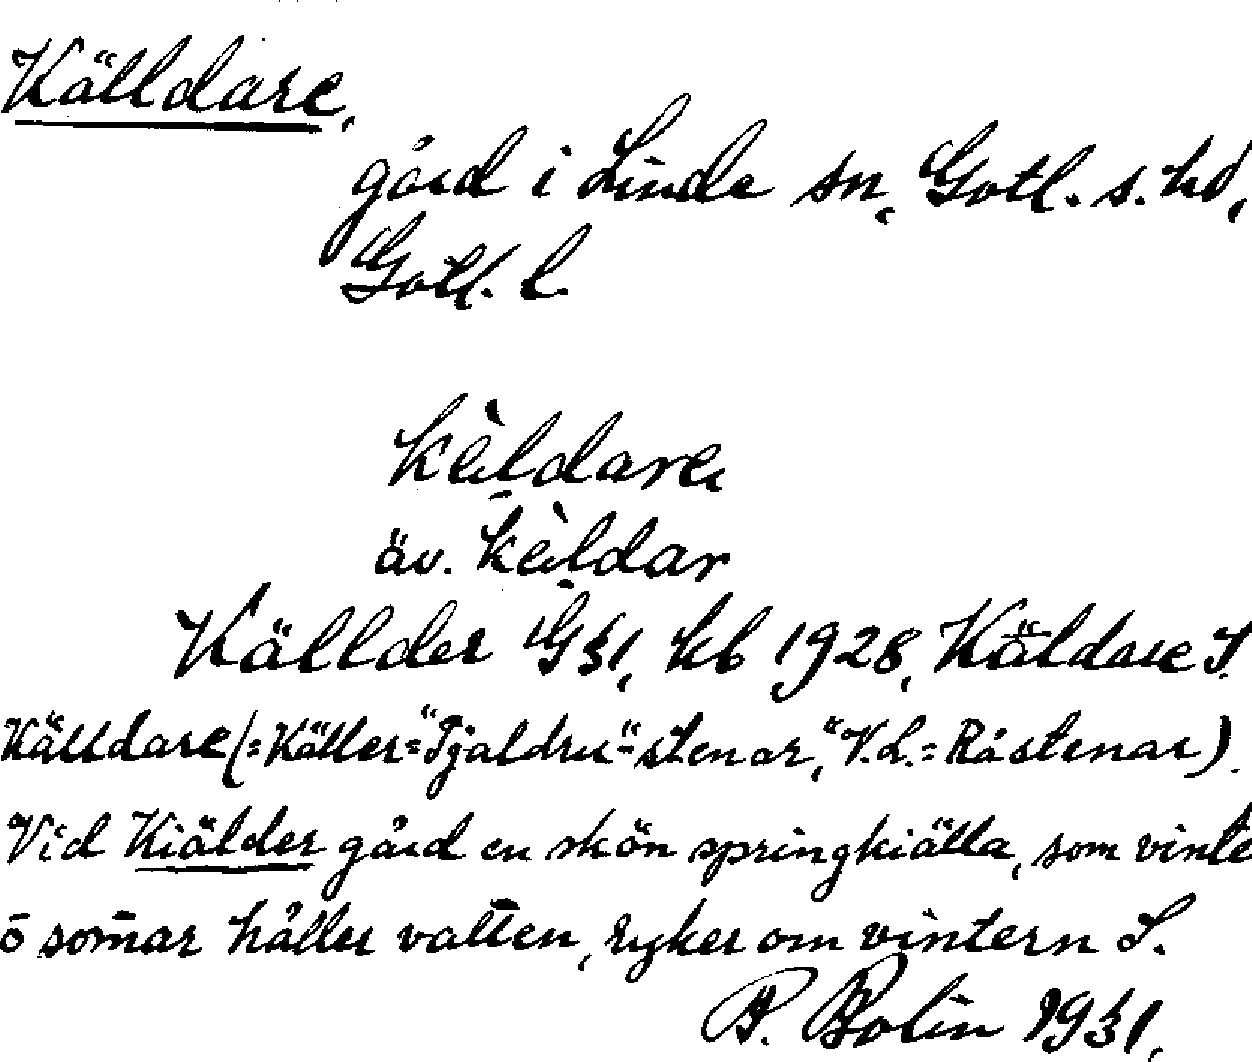 Källdare,
gård i Linde sn, Gotl. s. hd,
Gotl. l.
kèldare
äv. kèldar
Källder G 31, kb 1928, Käldare S.
Källdare (= Käller= "Tjaldru"-stenar," V.L. = Råstenar).
Vid Kiälder gård en skön springkiälla, som vinte
ō som̄ar håller vatten, ryker om vintern S.
P. Bolin 1931.